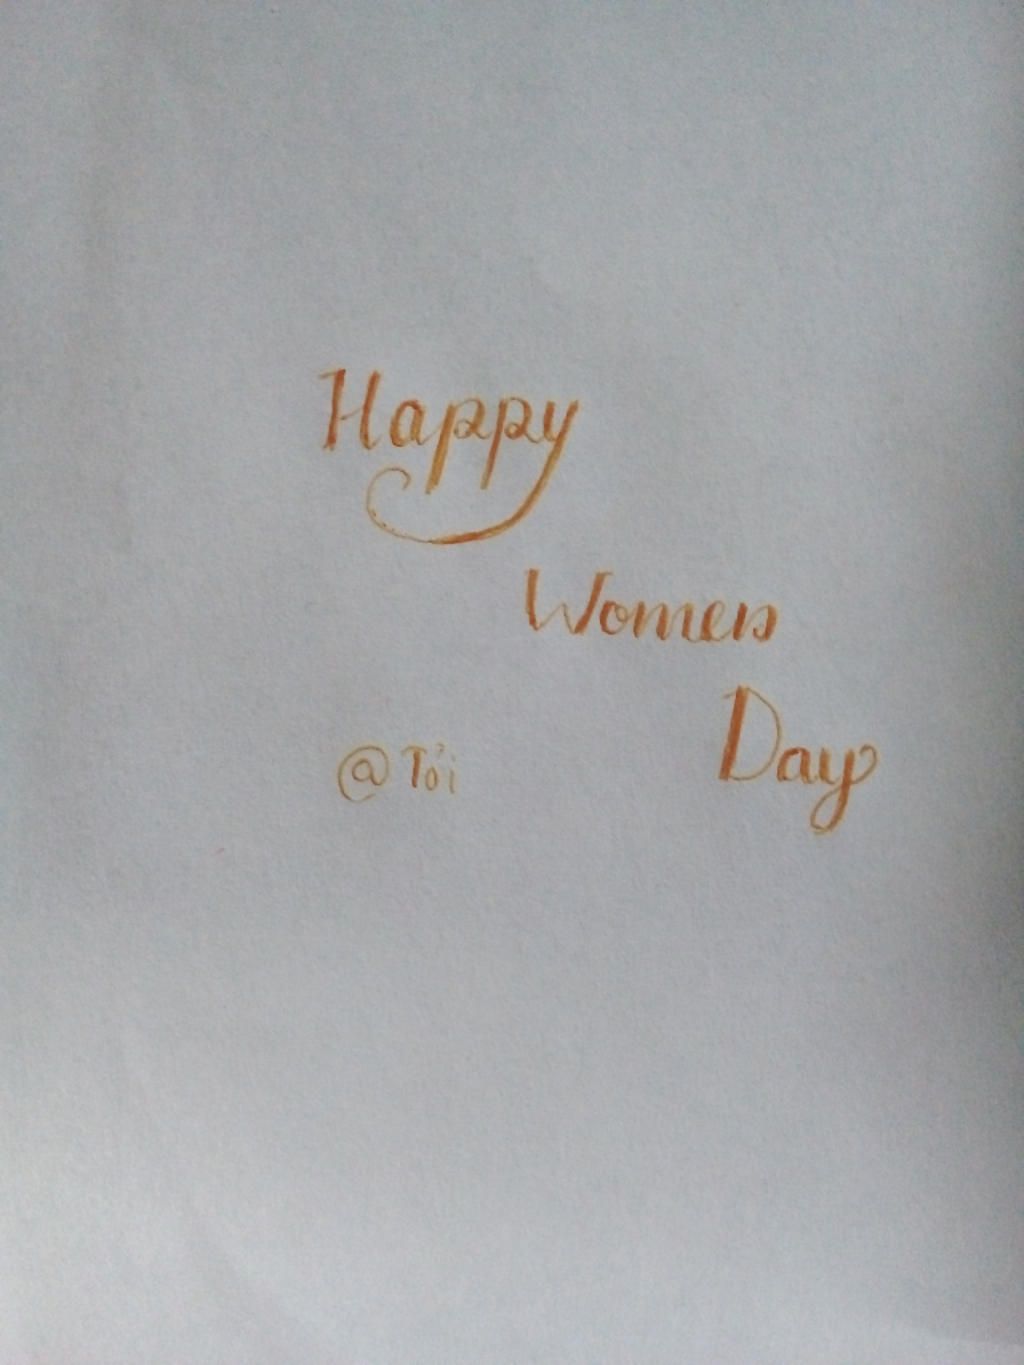 Happy
Women
Day
@Tỏi